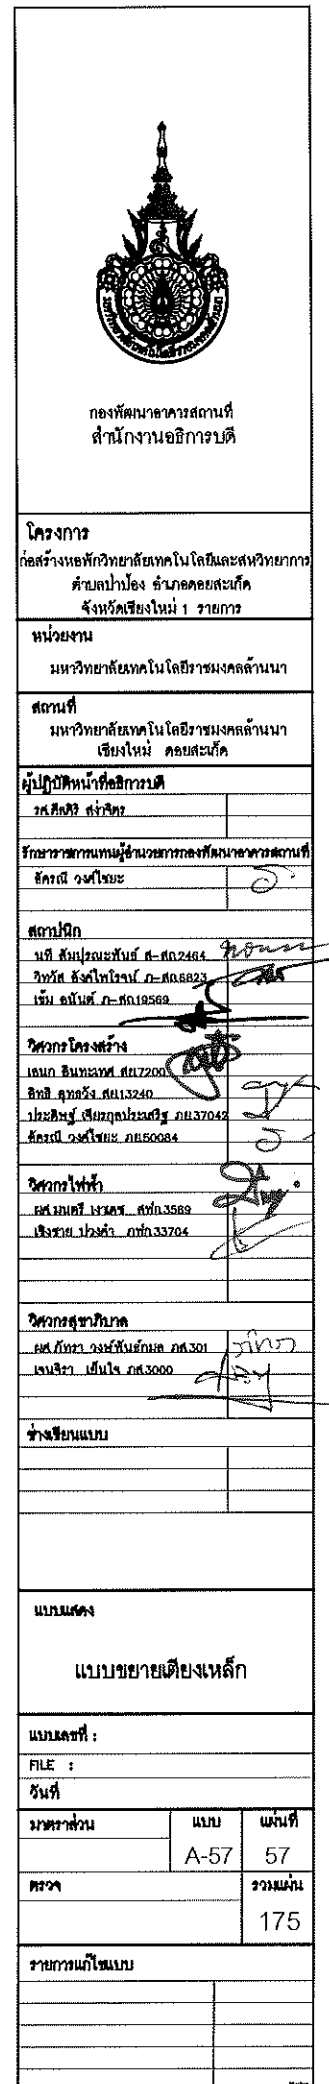 กองพัฒนาอาคารสถานที่
สำนักงานอธิการบดี
โครงการ
ก่อสร้างหอพักวิทยาลัยเทคโนโลยีและสหวิทยาการ
ตำบลป่าป้อง อำเภอดอยสะเก็ด
จังหวัดเชียงใหม่ 1 รายการ
หน่วยงาน
มหาวิทยาลัยเทคโนโลยีราชมงคลล้านนา
สถานที่
มหาวิทยาลัยเทคโนโลยีราชมงคลล้านนา
เชียงใหม่ ดอยสะเก็ด
ผู้ปฏิบัติหน้าที่อธิการบดี
รศ.ศีลศิริ สง่าจิตร
รักษาราชการแทนผู้อำนวยการกองพัฒนาอาคารสถานที่
อัครณี วงศ์ไชยะ
สถาปนิก
นที สัมปุรณะพันธ์ ส-สถ.2464
วิทวัส อังศ์ไพโรจน์ ภ-สถ.6823
เข้ม อนันต์ ภ-สถ.19569
วิศวกรโครงสร้าง
เอนก อินทะเทศ สย.7200
อิทธิ สย.13240
ประดิษฐ์ เจียรกุลประเสริฐ ภย.37042
อัครณี วงศ์ไชยะ ภย.50084
วิศวกรไฟฟ้า
ผศ.มนตรี เงาเดช สฟก.3569
เชิงชาย ปวงคำ ภฟก.33704
วิศวกรสุขาภิบาล
ผศ.ภัทรา วงษ์พันธ์กมล ภส.301
เจนจิรา เย็นใจ ภส.3000
ช่างเขียนแบบ
แบบแสดง
แบบขยายเตียงเหล็ก
แบบเลขที่ :
FILE :
วันที่
มาตราส่วน แบบ แผ่นที่
A-57 57
ตรวจ รวมแผ่น
175
รายการแก้ไขแบบ